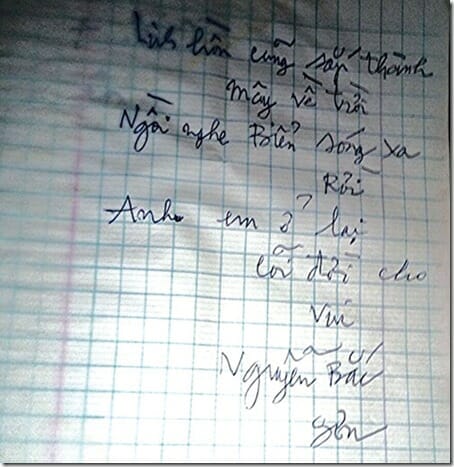 Linh hồn cũng sắp thành
mây về trời
Ngồi nghe Biển sóng xa
Rồi
Anh em ở lại
cõi đời cho
Vui
Nguyễn Bắc
Sơn